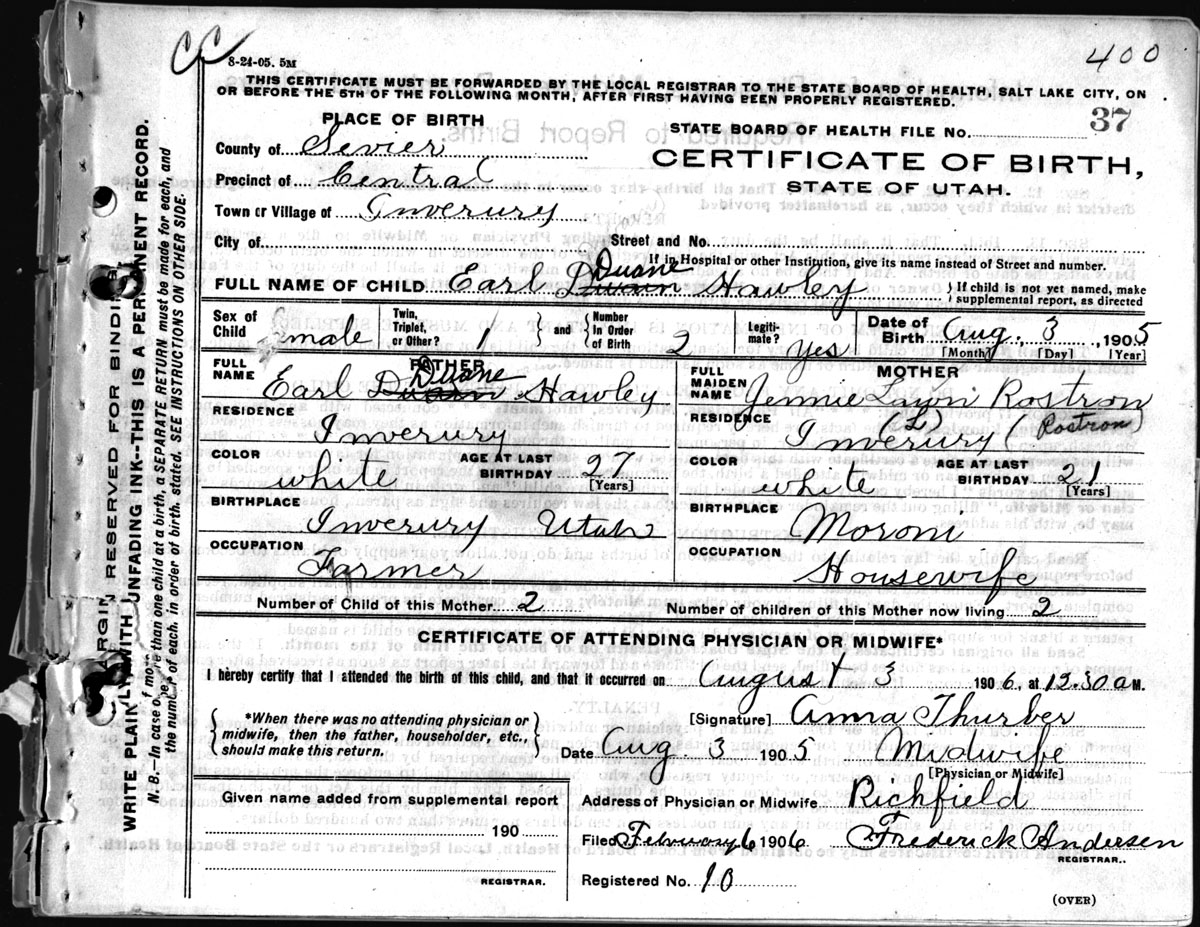 CC
8-24-05. 5M
400
THIS CERTIFICATE MUST BE FORWARDED BY THE LOCAL REGISTRAR TO THE STATE BOARD OF HEALTH, SALT LAKE CITY, ON
OR BEFORE THE 5TH OF THE FOLLOWING MONTH, AFTER FIRST HAVING BEEN PROPERLY REGISTERED.
PLACE OF BIRTH
STATE BOARD OF HEALTH FILE No. 37
County of Sevier
CERTIFICATE OF BIRTH,
Precinct of Central
STATE OF UTAH.
Town or Village of Inverury
City of
Street and No.
If in Hospital or other Institution, give its name instead of Street and number.
Duane
FULL NAME OF CHILD Earl Hawley
If child is not yet named, make
supplemental report, as directed
Sex of Child male
Twin, Triplet, or Other? 1
and
Number In Order of Birth 2
Legitimate? yes
Date of Birth Aug. 3 1905
[Month] [Day] [Year]
FATHER
FULL NAME Earl Duane Hawley
RESIDENCE
Inverury
COLOR white
AGE AT LAST BIRTHDAY 27
[Years]
BIRTHPLACE
Inverury Utah
OCCUPATION
Farmer
MOTHER
FULL MAIDEN NAME Jennie Rostron
RESIDENCE
Inverury (Rostron)
COLOR white
AGE AT LAST BIRTHDAY 21
[Years]
BIRTHPLACE
Moroni
OCCUPATION
Housewife
Number of Child of this Mother 2
Number of children of this Mother now living 2
CERTIFICATE OF ATTENDING PHYSICIAN OR MIDWIFE*
I hereby certify that I attended the birth of this child, and that it occurred on August 3 1906, at 12.30 a M.
*When there was no attending physician or
midwife, then the father, householder, etc.,
should make this return.
[Signature] Anna Thurber
Date Aug 3 1905 Midwife
[Physician or Midwife]
Given name added from supplemental report
190
REGISTRAR.
Address of Physician or Midwife Richfield
Filed February 6 1906 Frederick Andersen
REGISTRAR..
Registered No. 10
(OVER)
MARGIN RESERVED FOR BINDING
WRITE PLAINLY WITH UNFADING INK--THIS IS A PERMANENT RECORD.
N. B.—In case of more than one child at a birth, a SEPARATE RETURN must be made for each, and
the number of each, in order of birth, stated. SEE INSTRUCTIONS ON OTHER SIDE.